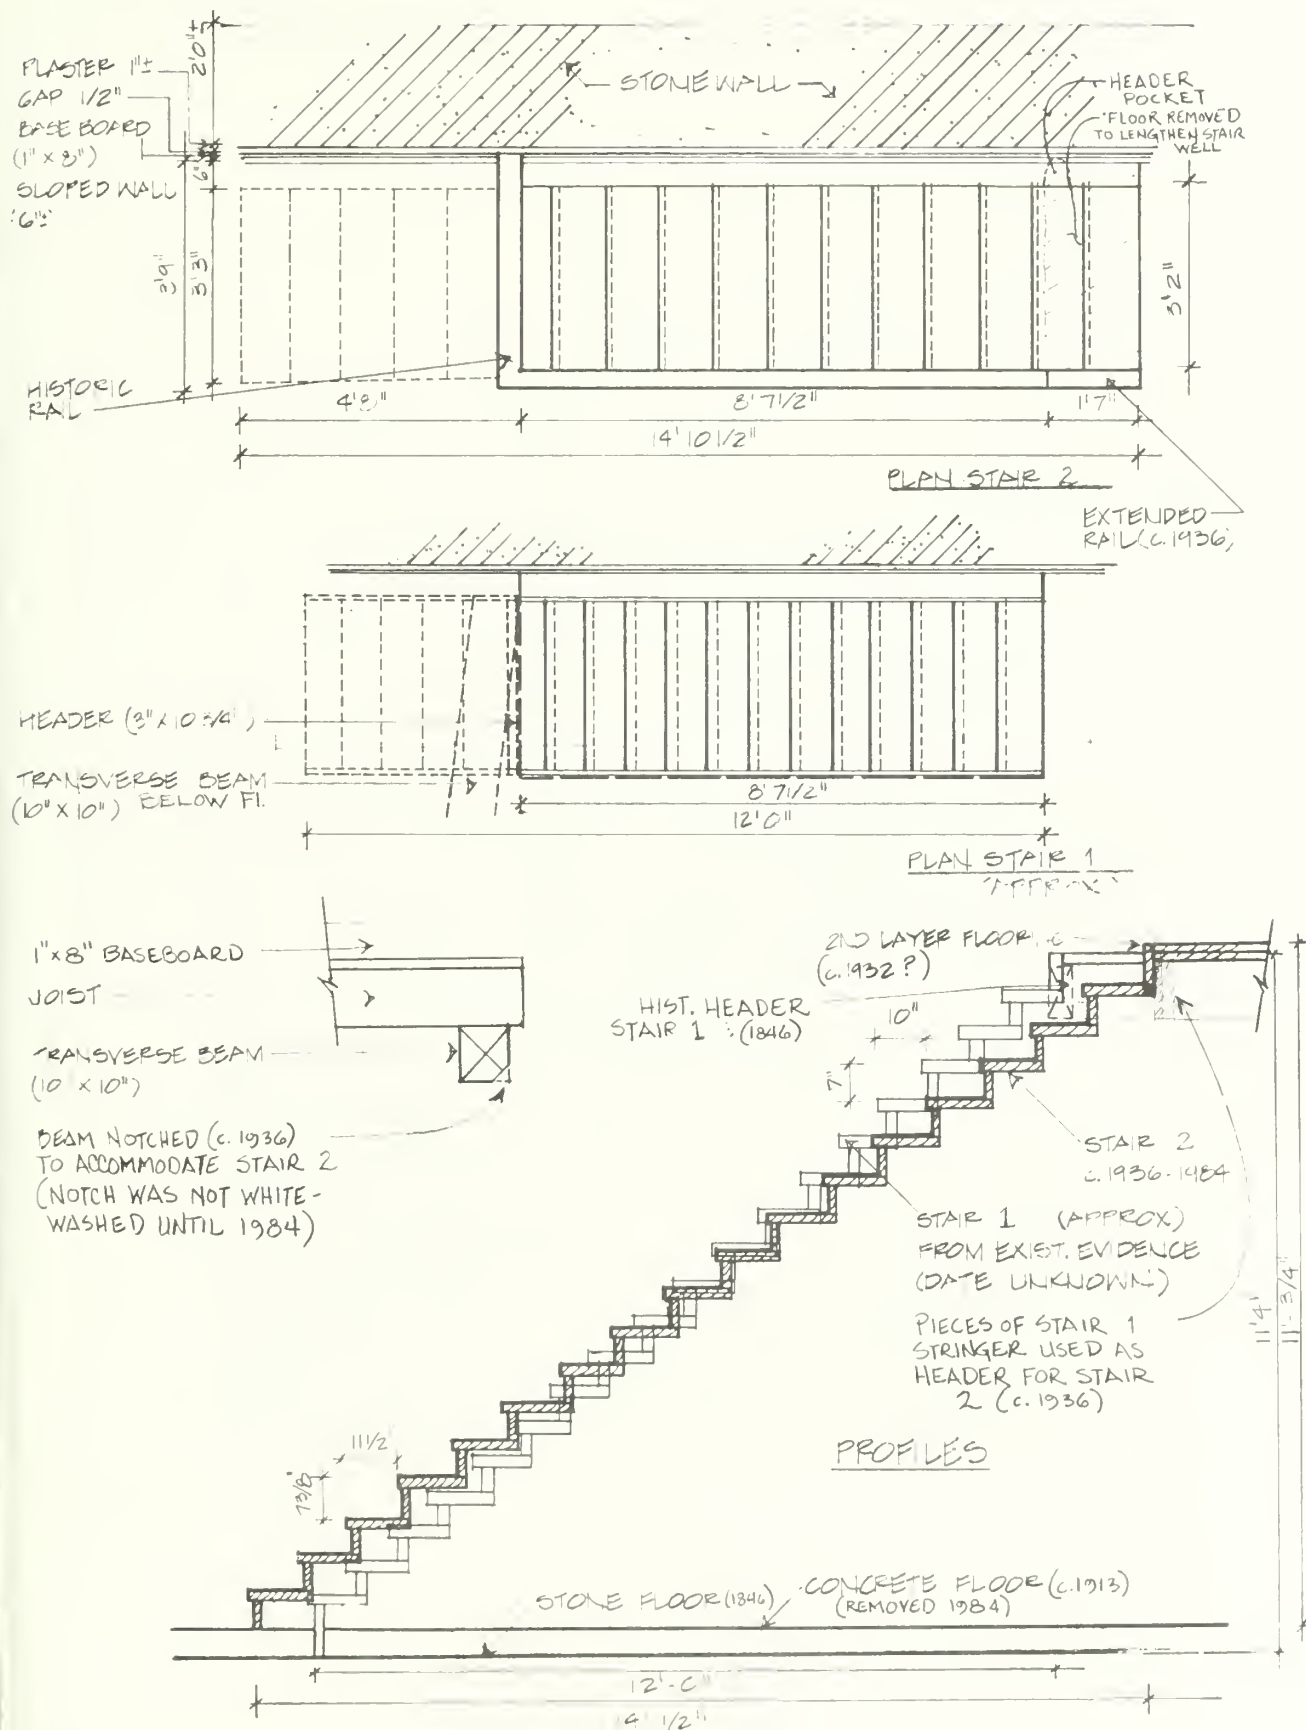 2'0"±
PLASTER 1"±
GAP 1/2"
BASE BOARD
(1" x 8")
SLOPED WALL
6"±
6"
STONE WALL
HEADER
POCKET
FLOOR REMOVED
TO LENGTHEN STAIR
WELL
3'9"
3'3"
3'2"
HISTORIC
RAIL
4'8"
8'7 1/2"
1'7"
14'10 1/2"
PLAN STAIR 2
EXTENDED
RAIL (c.1936)
HEADER (3" x 10 3/4")
TRANSVERSE BEAM
(10" x 10") BELOW Fl.
8'7 1/2"
12'0"
PLAN STAIR 1
(APPROX)
1" x 8" BASEBOARD
JOIST
TRANSVERSE BEAM
(10" x 10")
BEAM NOTCHED (c. 1936)
TO ACCOMMODATE STAIR 2
(NOTCH WAS NOT WHITE-
WASHED UNTIL 1984)
2ND LAYER FLOOR
(c. 1932?)
HIST. HEADER
STAIR 1 (1846)
10"
7"
STAIR 2
c. 1936-1984
STAIR 1 (APPROX)
FROM EXIST. EVIDENCE
(DATE UNKNOWN)
PIECES OF STAIR 1
STRINGER USED AS
HEADER FOR STAIR
2 (c. 1936)
11'4"
11'-3/4"
PROFILES
11 1/2
7 3/8"
STONE FLOOR (1846)
CONCRETE FLOOR (c.1913)
(REMOVED 1984)
12'-0"